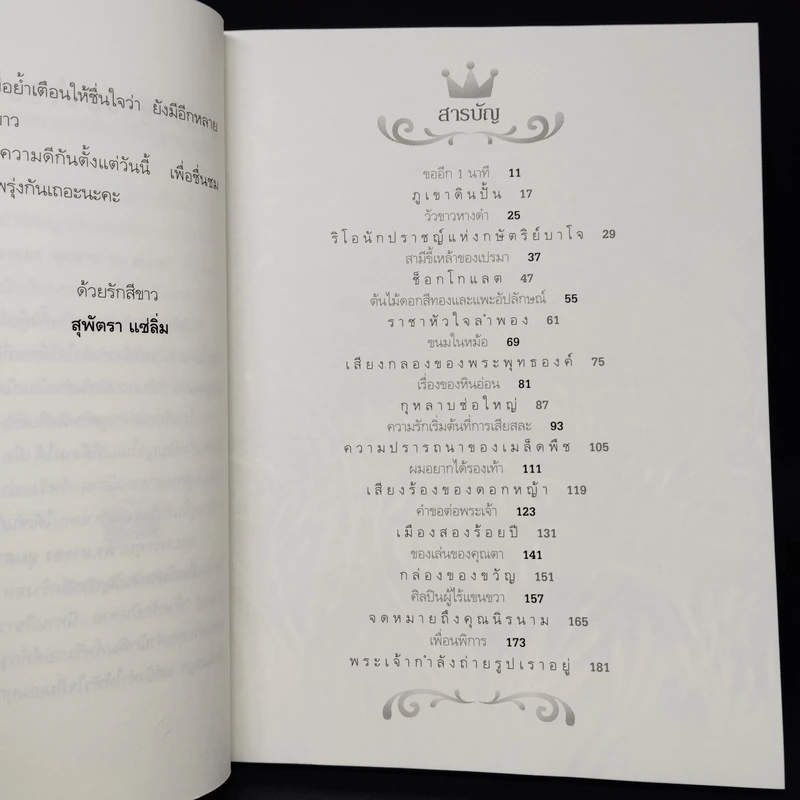 ย้ำเตือนให้ชื่นใจว่า ยังมีอีกหลาย
ความดีกันตั้งแต่วันนี้ เพื่อชื่นชม
พรุ่งกันเถอะนะคะ
ด้วยรักสีขาว
สุพัตรา แซ่ลิ่ม
สารบัญ
ขออีก 1 นาที 11
ภูเขาดินปั้น 17
วัวขาวหางดำ 25
ริโอนักปราชญ์แห่งกษัตริย์บาโจ 29
สามีขี้เหล้าของเปรมา 37
ช็อกโกแลต 47
ต้นไม้ดอกสีทองและแพะอัปลักษณ์ 55
ราชาหัวใจลำพอง 61
ขนมในหม้อ 69
เสียงกลองของพระพุทธองค์ 75
เรื่องของหินอ่อน 81
กุหลาบช่อใหญ่ 87
ความรักเริ่มต้นที่การเสียสละ 93
ความปรารถนาของเมล็ดพืช 105
ผมอยากได้รองเท้า 111
เสียงร้องของดอกหญ้า 119
คำขอต่อพระเจ้า 123
เมืองสองร้อยปี 131
ของเล่นของคุณตา 141
กล่องของขวัญ 151
ศิลปินผู้ไร้แขนขวา 157
จดหมายถึงคุณนิรนาม 165
เพื่อนพิการ 173
พระเจ้ากำลังถ่ายรูปเราอยู่ 181